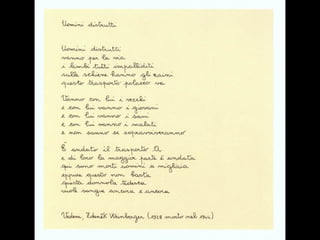 Uomini distrutti
Uomini distrutti
vanno per la via
i bimbi tutti impalliditi
sulle schiene hanno gli zaini
questo trasporto palacco va
Vanno con lui i vecchi
e con lui vanno i giovani
e con lui vanno i sani
e con lui vanno i malati
e non sanno se sopravviveranno
È andato il trasporto A
e di loro la maggior parte è andata
qui sono morti uomini a migliaia
eppure questo non basta
questa donnola tedesca
vuole sangue ancora e ancora
Vedem, Zdeněk Weinberger (1928 morto nel 1944)